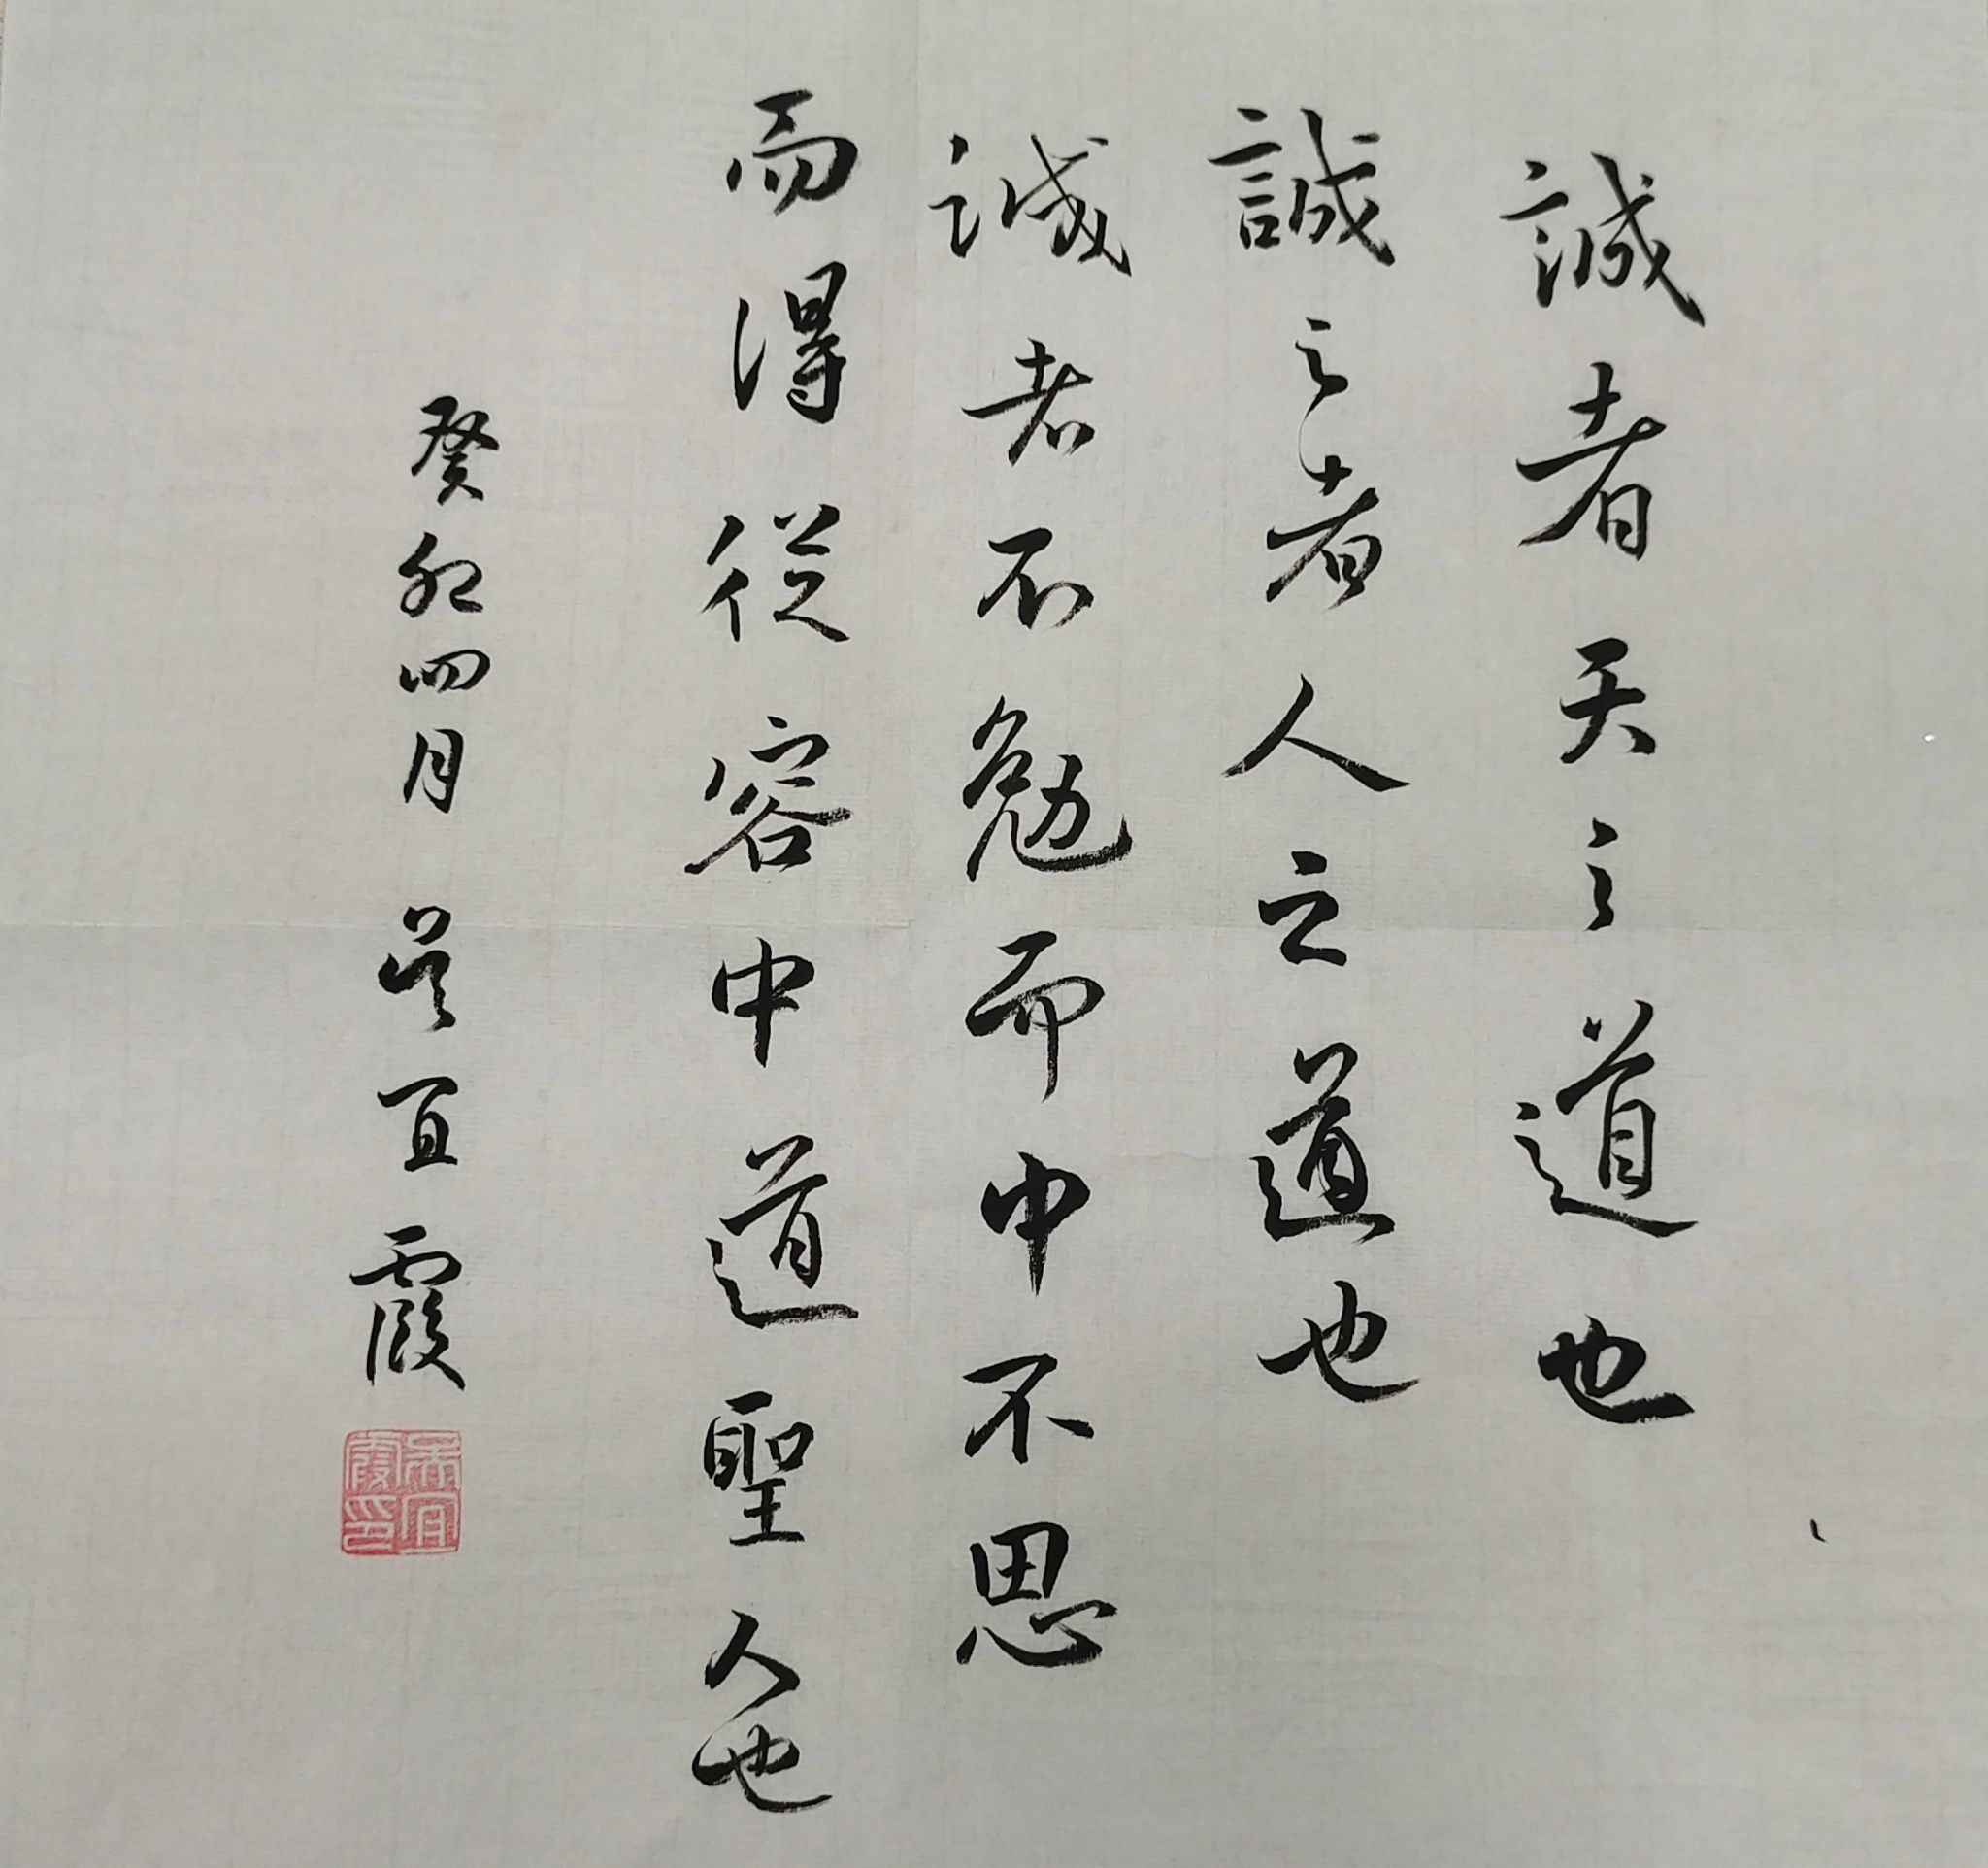 誠者天之道也
誠之者人之道也
誠者不勉而中不思
而得従容中道聖人也
癸卯四月 吴宜霞
吴宜霞印